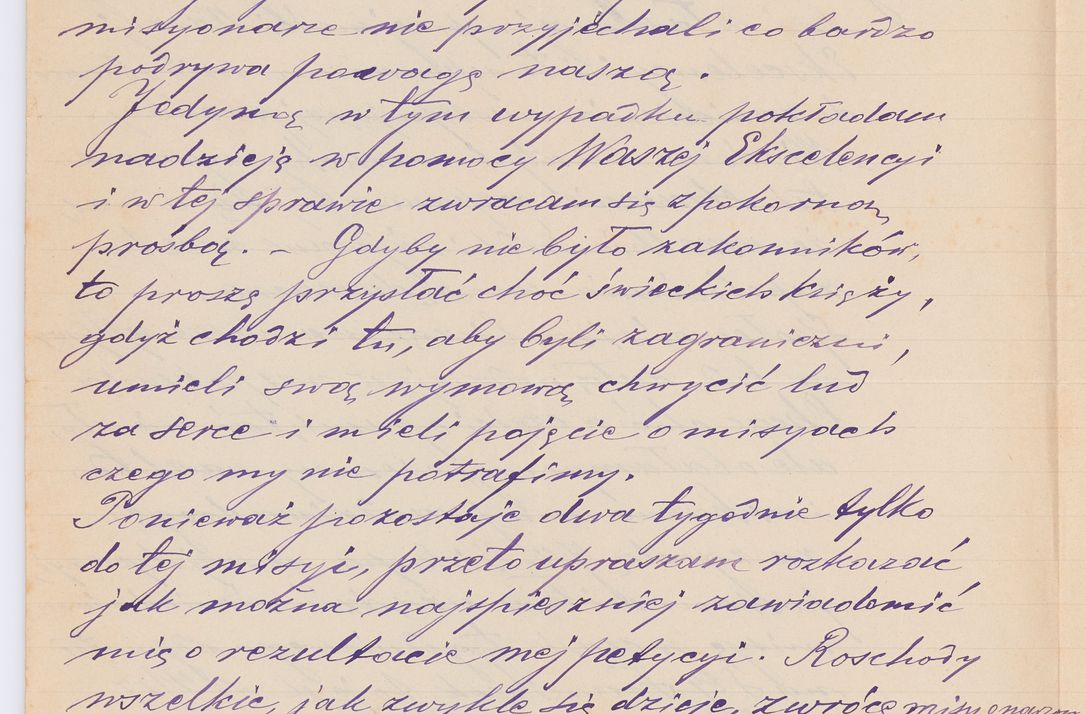 misyonarze nie przyjechali co bardzo
podrywa powagę naszą.
Jedyną w tym wypadku pokładam
nadzieję w pomocy Waszej Ekscelencyi
i w tej sprawie zwracam się z pokorną
prośbą. – Gdyby nie było zakonników,
to proszę przysłać choć świeckich księży,
gdyż chodzi tu, aby byli zagraniczni,
umieli swą wymową chwycić lud
za serce i mieli pojęcie o misyach
czego my nie potrafimy.
Ponieważ pozostaje dwa tygodnie tylko
do tej misyi, przeto upraszam rozkazać
jak można najspieszniej zawiadomić
mię o rezultacie mej petycyi. Roschody
wszelkie, jak zwykle się dzieje, zwrócę misyonarzom